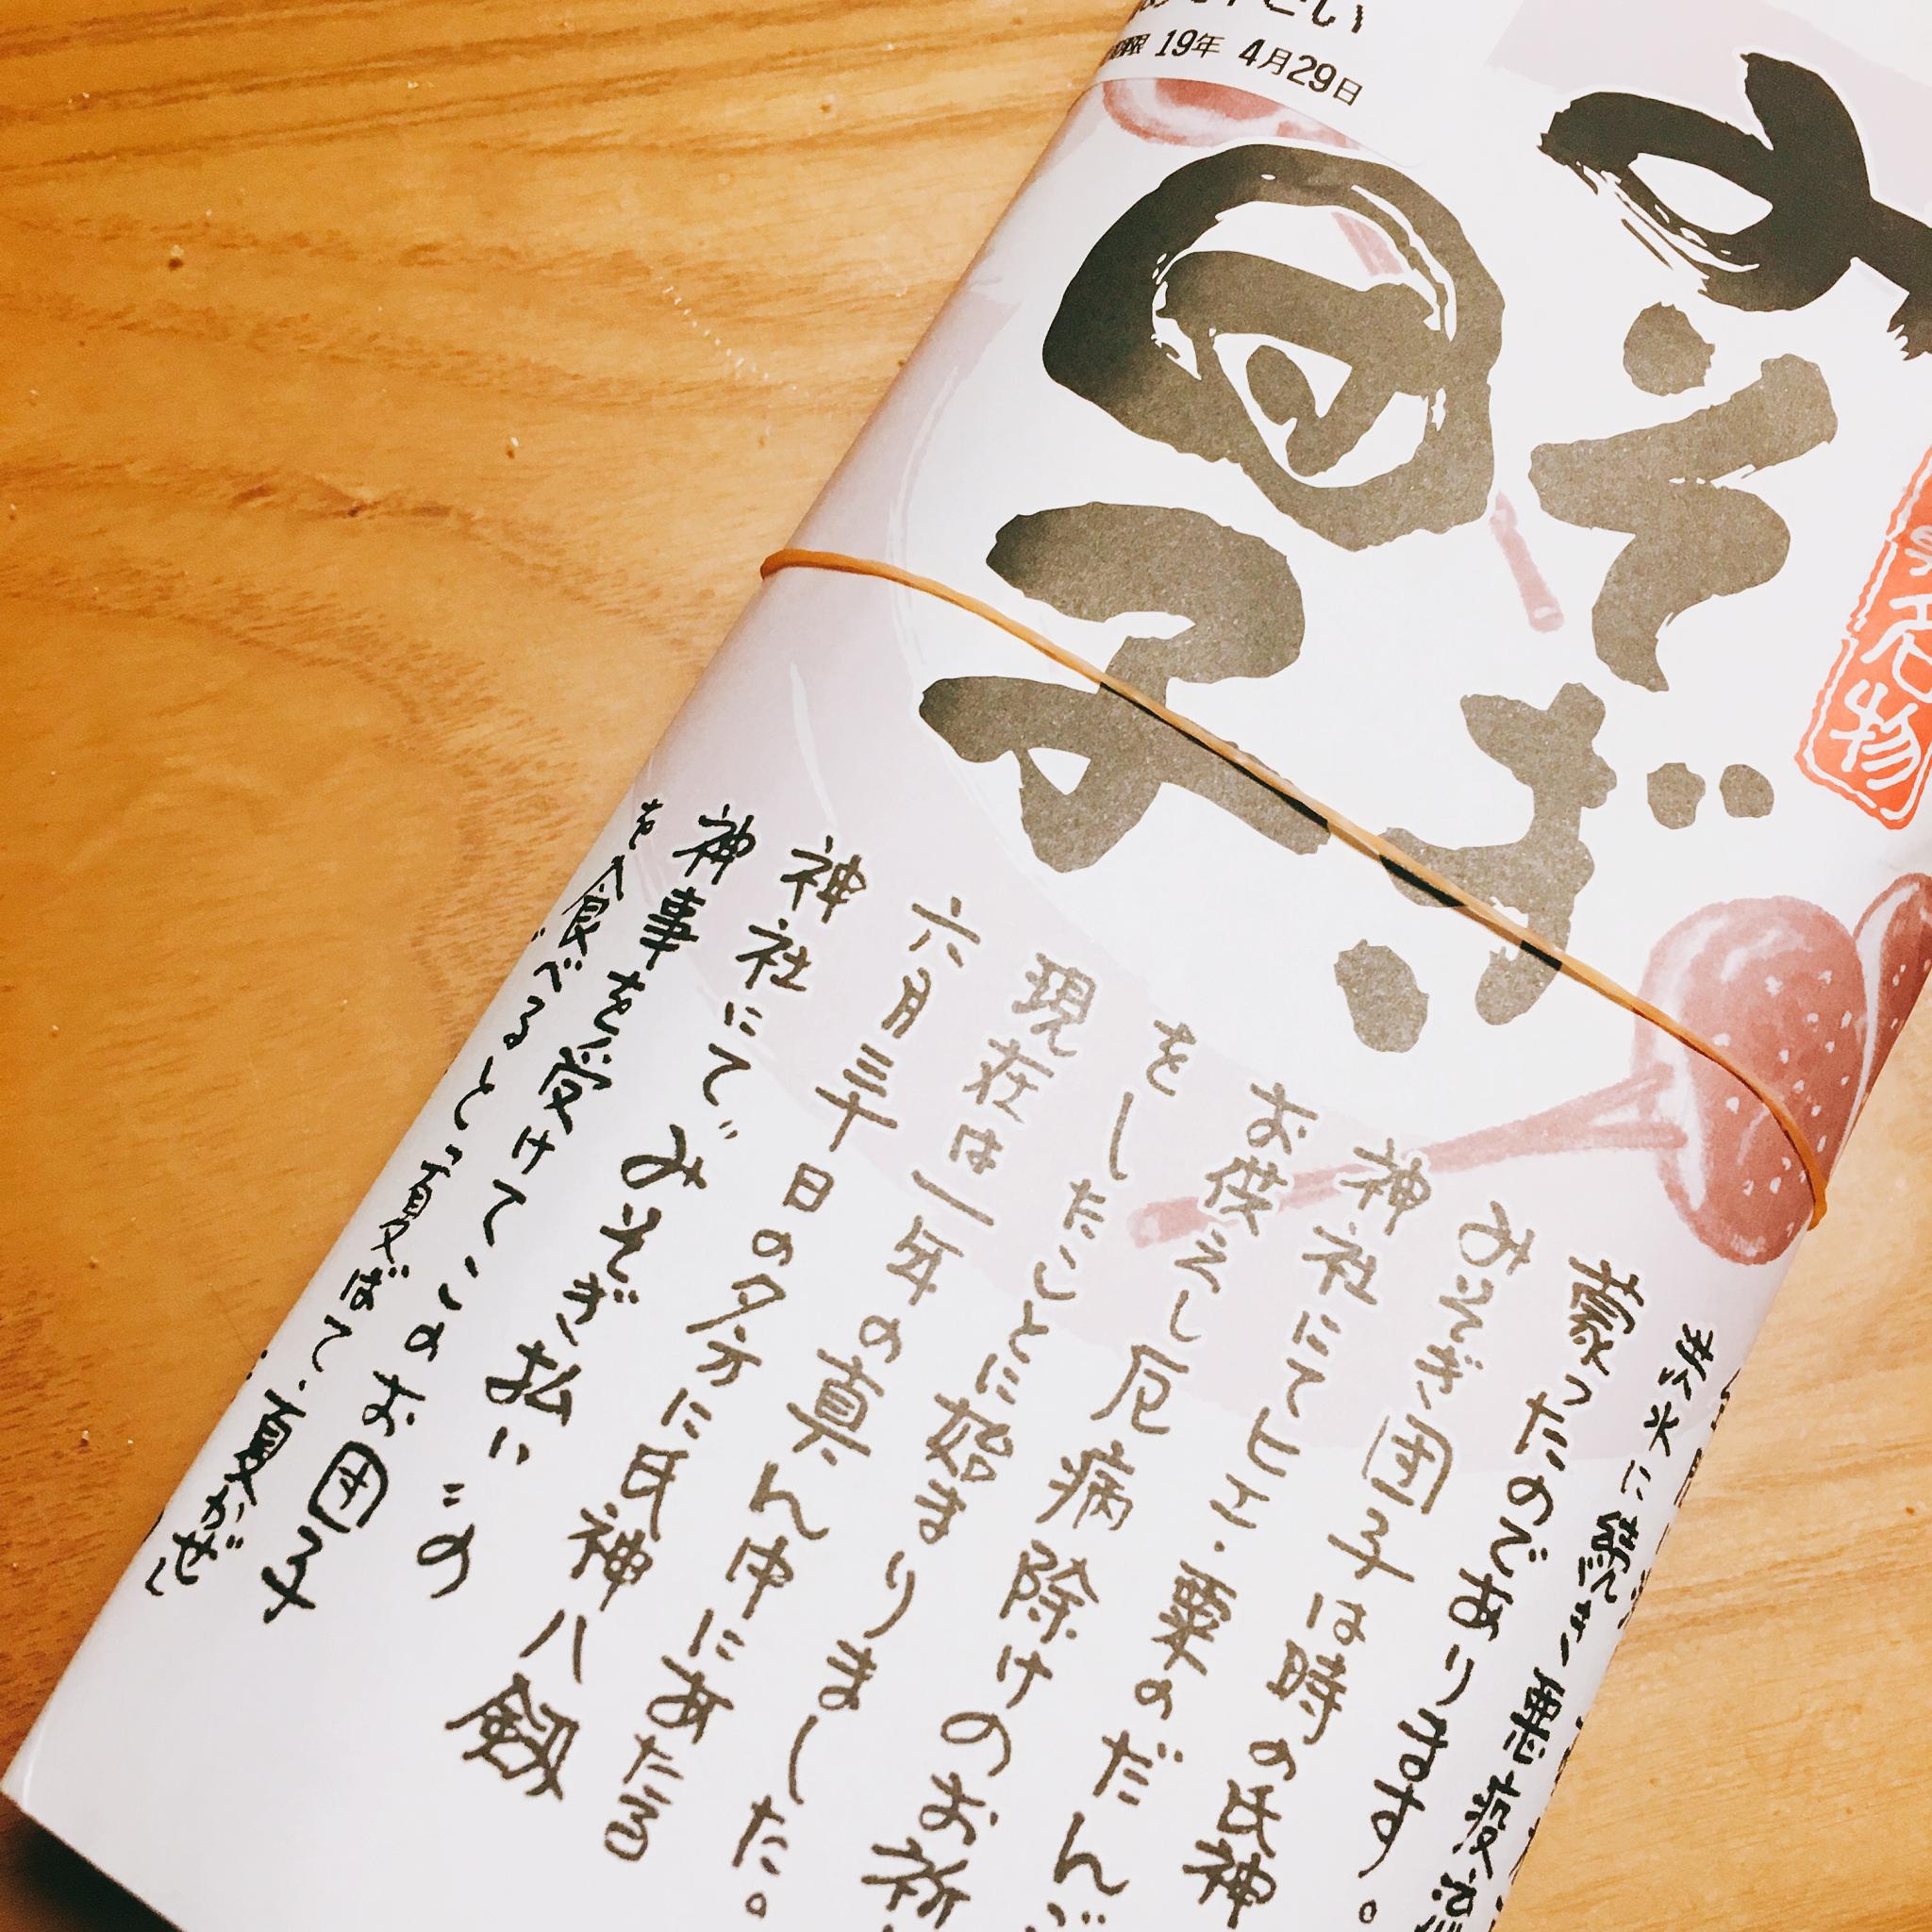 19年 4月29日
みそぎ
団子
名物
に続き悪疫
蒙ったのであります。
みそぎ団子は時の氏神
神社にてヒエ・粟のだん
お供えし厄病除けのお祈
をしたことに始まりました。
現在は一年の真ん中にあたる
六月三十日の夕方に氏神八剱
神社にてみそぎ払いの
神事を受けてこのお団子
を食べると、夏ばて・夏かぜ